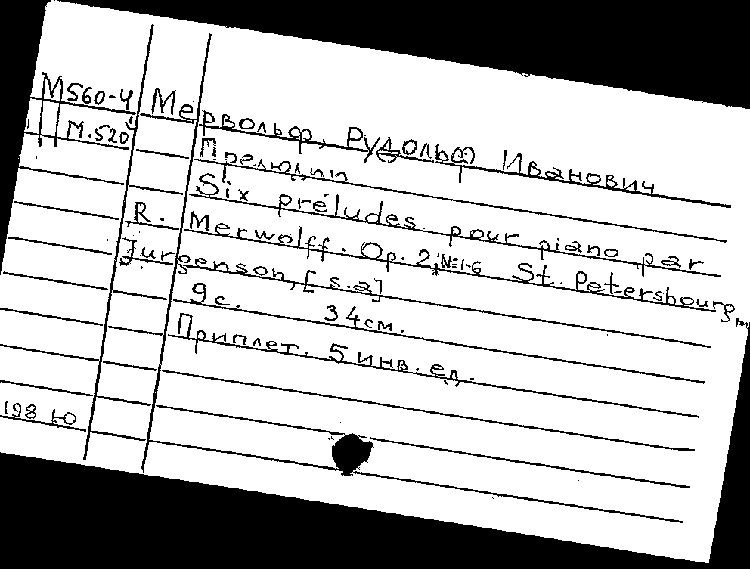 М560-4 Мервольф, Рудольф Иванович
М.520 Прелюдии
Six préludes pour piano par
R. Merwolff. Op. 2, №1-6 St. Petersbourg,
Jurgenson, [s.a]
9с. 34см.
Приплет. 5 инв. ед.
198 Ю